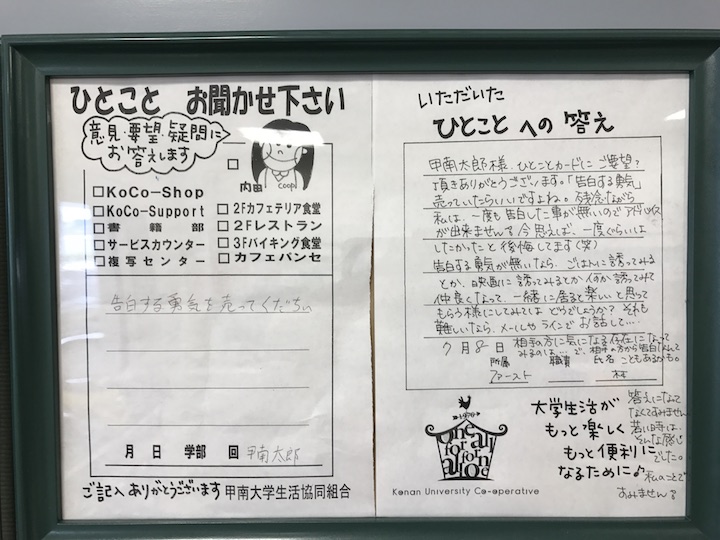 ひとこと お聞かせ下さい
意見・要望・疑問に
お答えします
内田
coop
□KoCo-Shop
□KoCo-Support
□書籍部
□サービスカウンター
□複写センター
□2Fカフェテリア食堂
□2Fレストラン
□3Fバイキング食堂
□カフェパンセ
告白する勇気を売ってくだちぃ
月 日 学部 回 甲南太郎
ご記入ありがとうございます 甲南大学生活協同組合
いただいた
ひとことへの答え
甲南太郎様、ひとことカードにご要望?
頂きありがとうございます。「告白する勇気」
売っていたらいいですよね。残念ながら
私は、一度も告白した事が無いのでアドバイス
が出来ません。今思えば、一度ぐらいは
したかったと後悔してます(笑)
告白する勇気が無いなら、ごはんに誘ってみる
とか、映画に誘ってみるとか何か誘ってみて
仲良くなって、一緒に居ると楽しいと思って
もらう様にしてみてはどうでしょうか?それも
難しいなら、メールやラインでお話して…
7月8日 相手の方に気になる存在になって
みるのは…で、相手の方から告白なんて
こともあるかも。
所属 職責 氏名
ファースト 村
1976
one for all
all for one
Konan University Co-operative
大学生活が
もっと楽しく
もっと便利に
なるために♪
答えになって
なくてすみません
若い時は、
そんな感じ
でした。
私のことで
すみません